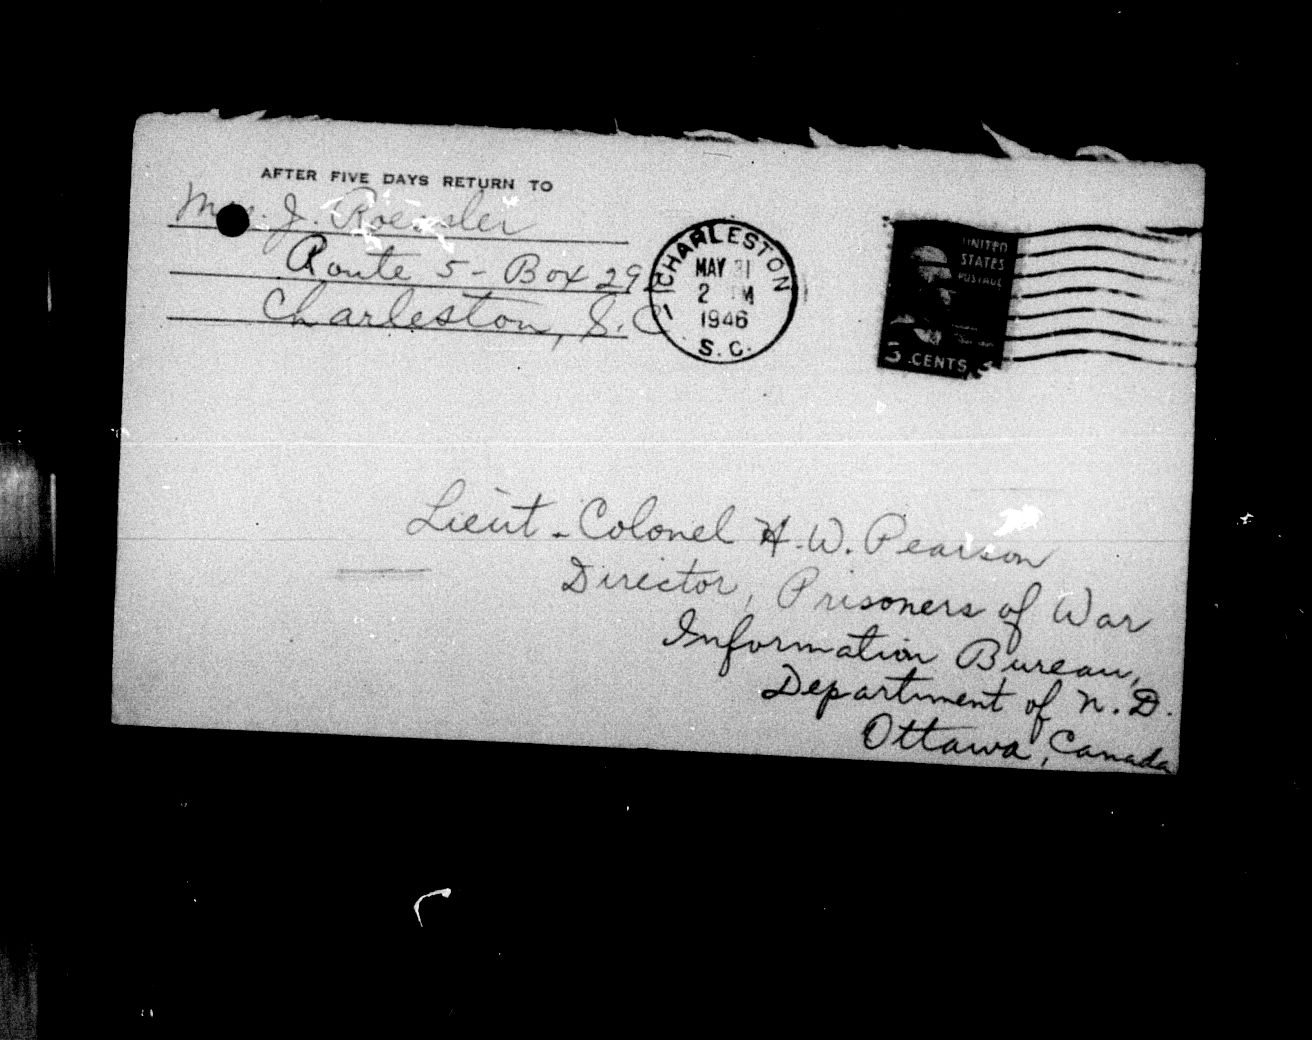 AFTER FIVE DAYS RETURN TO
J. Roessler
Route 5 - Box 29
Charleston, S.C.
CHARLESTON
MAY 31
2 M
1946
S. C.
UNITED
STATES
POSTAGE
3 CENTS 3
Lieut-Colonel H.W. Pearson
Director, Prisoners of War
Information Bureau,
Department of N.D.
Ottawa, Canada